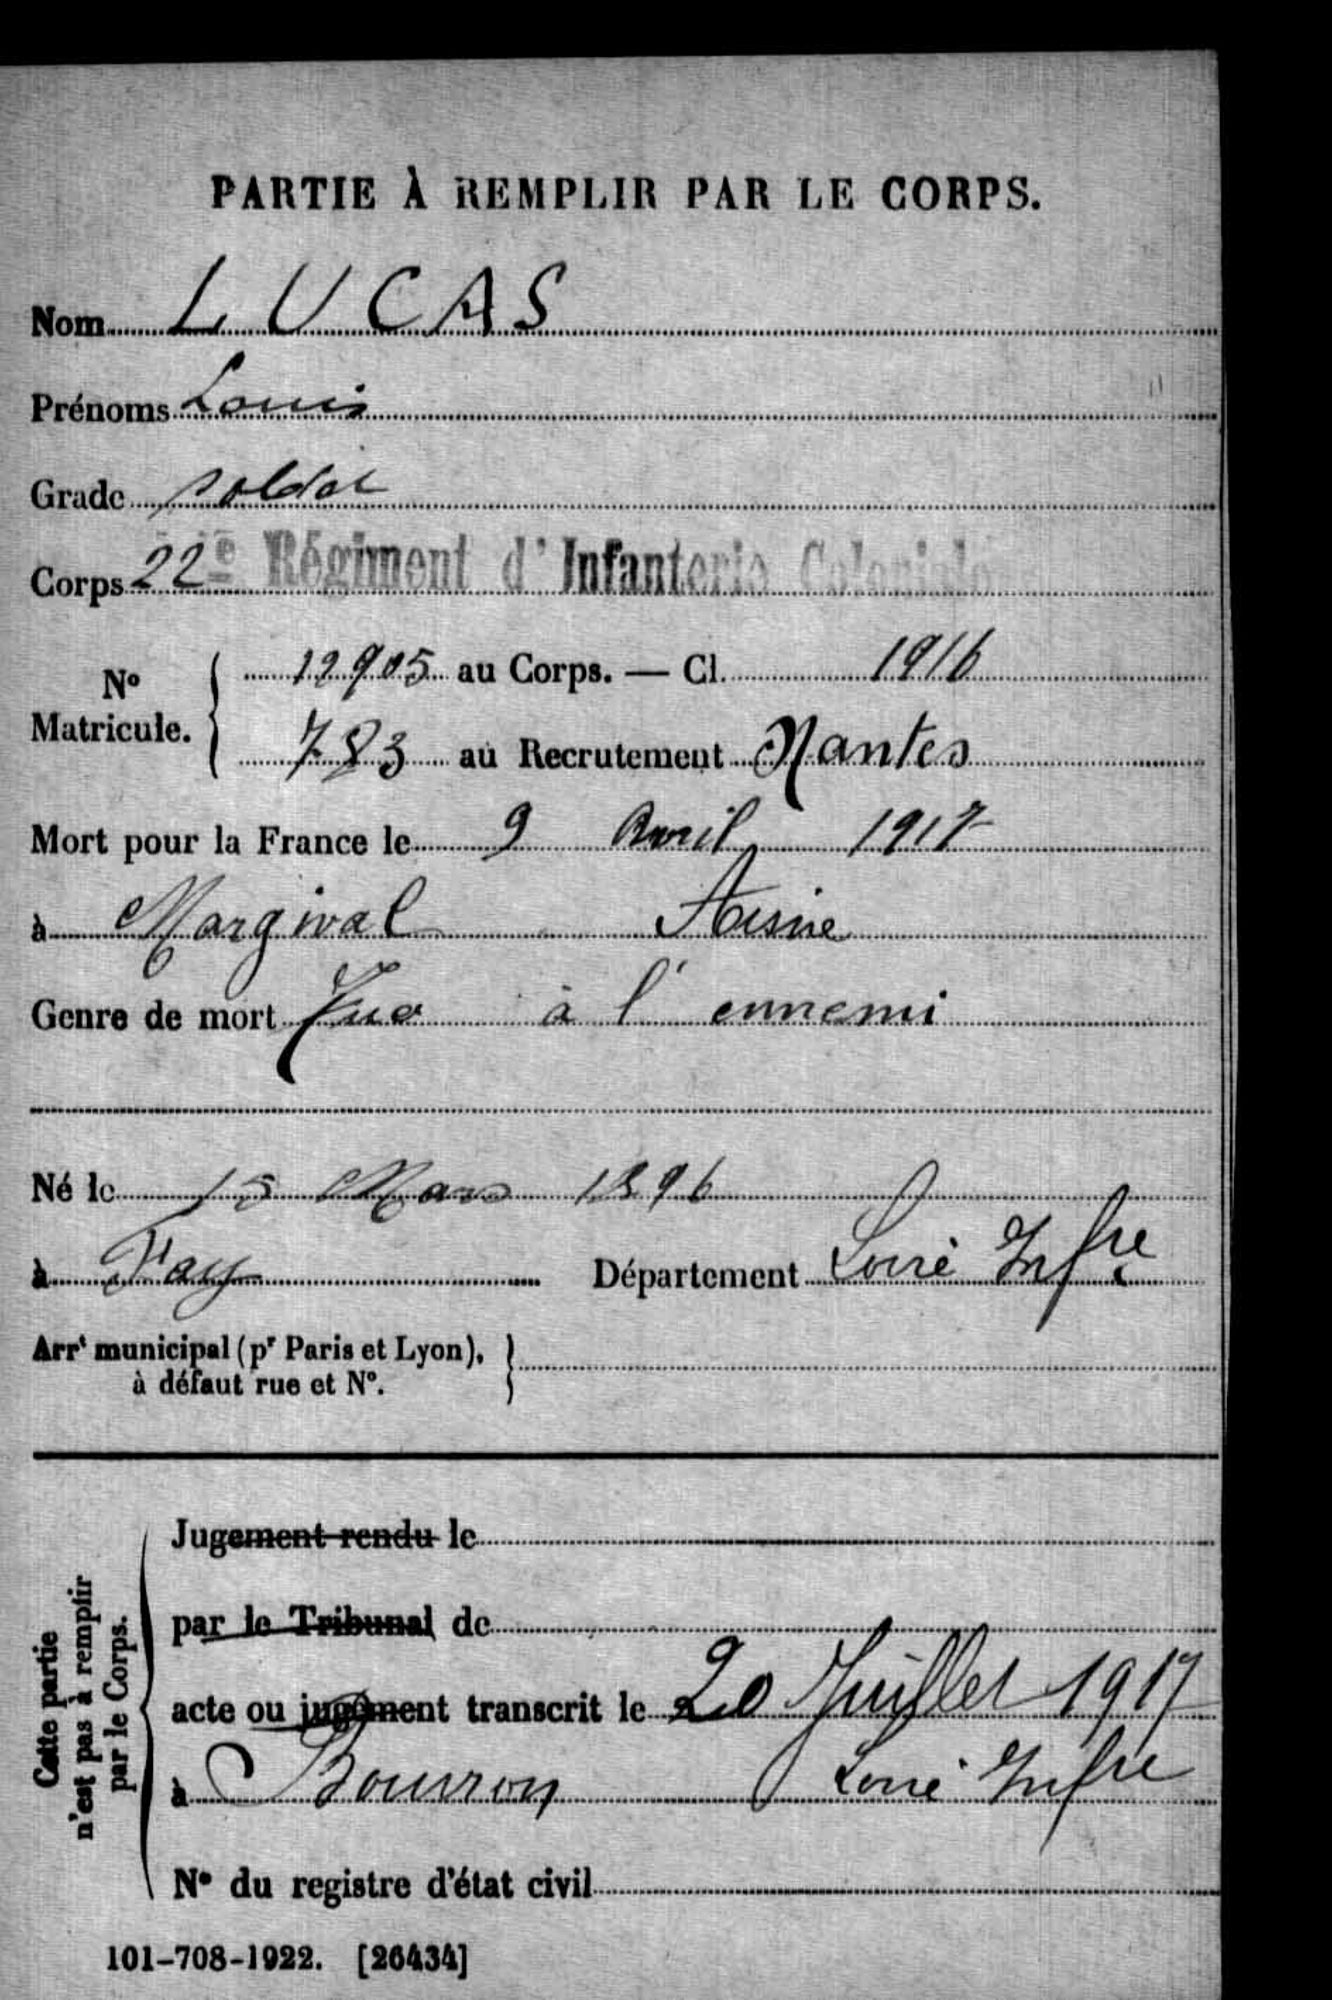 PARTIE À REMPLIR PAR LE CORPS.
Nom LUCAS
Prénoms Louis
Grade soldat
Corps 22e Régiment d'Infanterie Coloniale
No Matricule. 12905 au Corps. — Cl. 1916
783 au Recrutement Nantes
Mort pour la France le 9 Avril 1917
à Margival Aisne
Genre de mort Tué à l'ennemi
Né le 15 Mars 1896
à Fay Département Loire Infre
Arrt municipal (pr Paris et Lyon),
à défaut rue et No.
Cette partie
n'est pas à remplir
par le Corps.
Jugement rendu le
par le Tribunal de
acte ou jugement transcrit le 20 Juillet 1917
à Bouvron Loire Infre
No du registre d'état civil
101-708-1922. [26434]